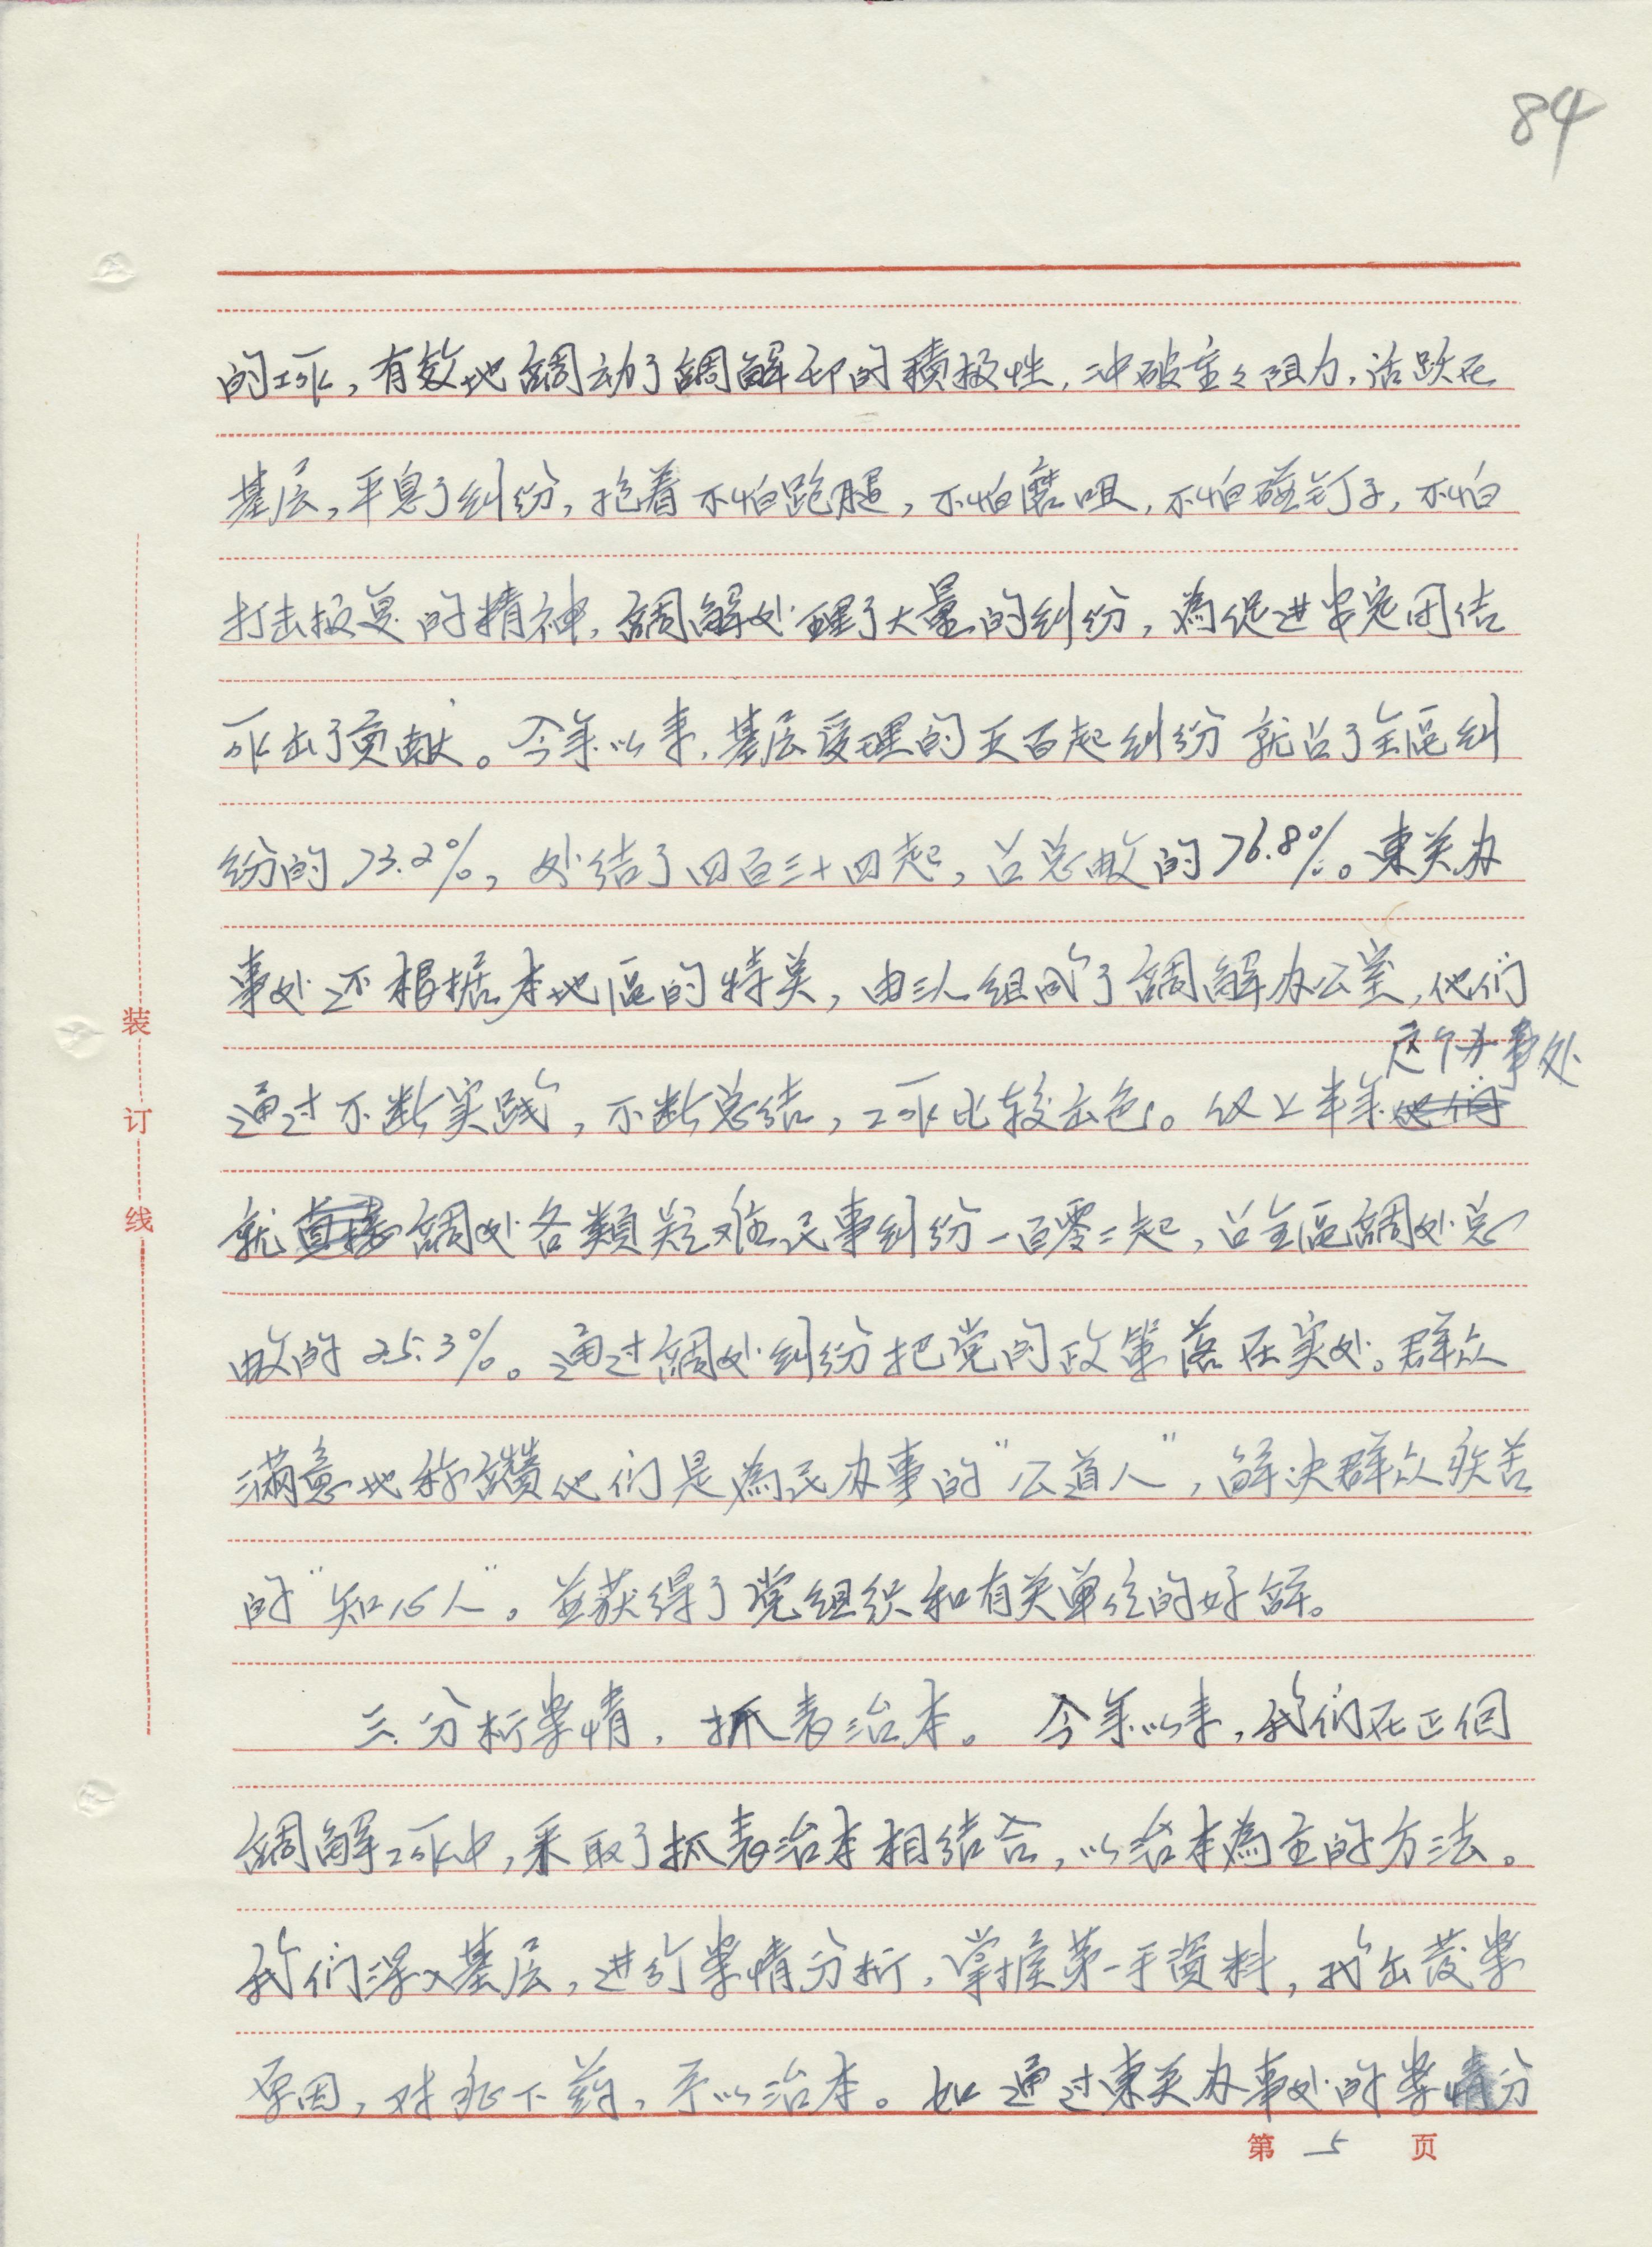 84
的工作,有效地調动了調解干部的積极性,冲破重々阻力,活跃在
基层,平息了纠纷,抱着不怕跑腿,不怕磨咀,不怕碰钉子,不怕
打击报复的精神,調解处理了大量的纠纷,為促进安定团结
作出了贡献。今年以来,基层受理的五百起纠纷就占了全區纠
纷的73.2%,处结了四百三十四起,占总数的76.8%。東关办
事处还根据本地區的特点,由三人组成了調解办公室,他们
这个办事处
通过不断实践,不断总结,工作比较出色。仅上半年他们
就直接調处各類疑难民事纠纷一百零二起,占全區調处总
数的25.3%。通过調处纠纷把党的政策落在实处。群众
满意地称讚他们是為民办事的“公道人”,解决群众疾苦
的“知心人”。並获得了党组织和有关单位的好評。
三.分析案情,抓表治本。今年以来,我们在正個
調解工作中,采取了抓表治本相结合,以治本為主的方法。
我们深入基层,进行案情分析,掌握第一手資料,找出發案
原因,对症下药,予以治本。如通过東关办事处的案情分
装
订
线
第 5 页